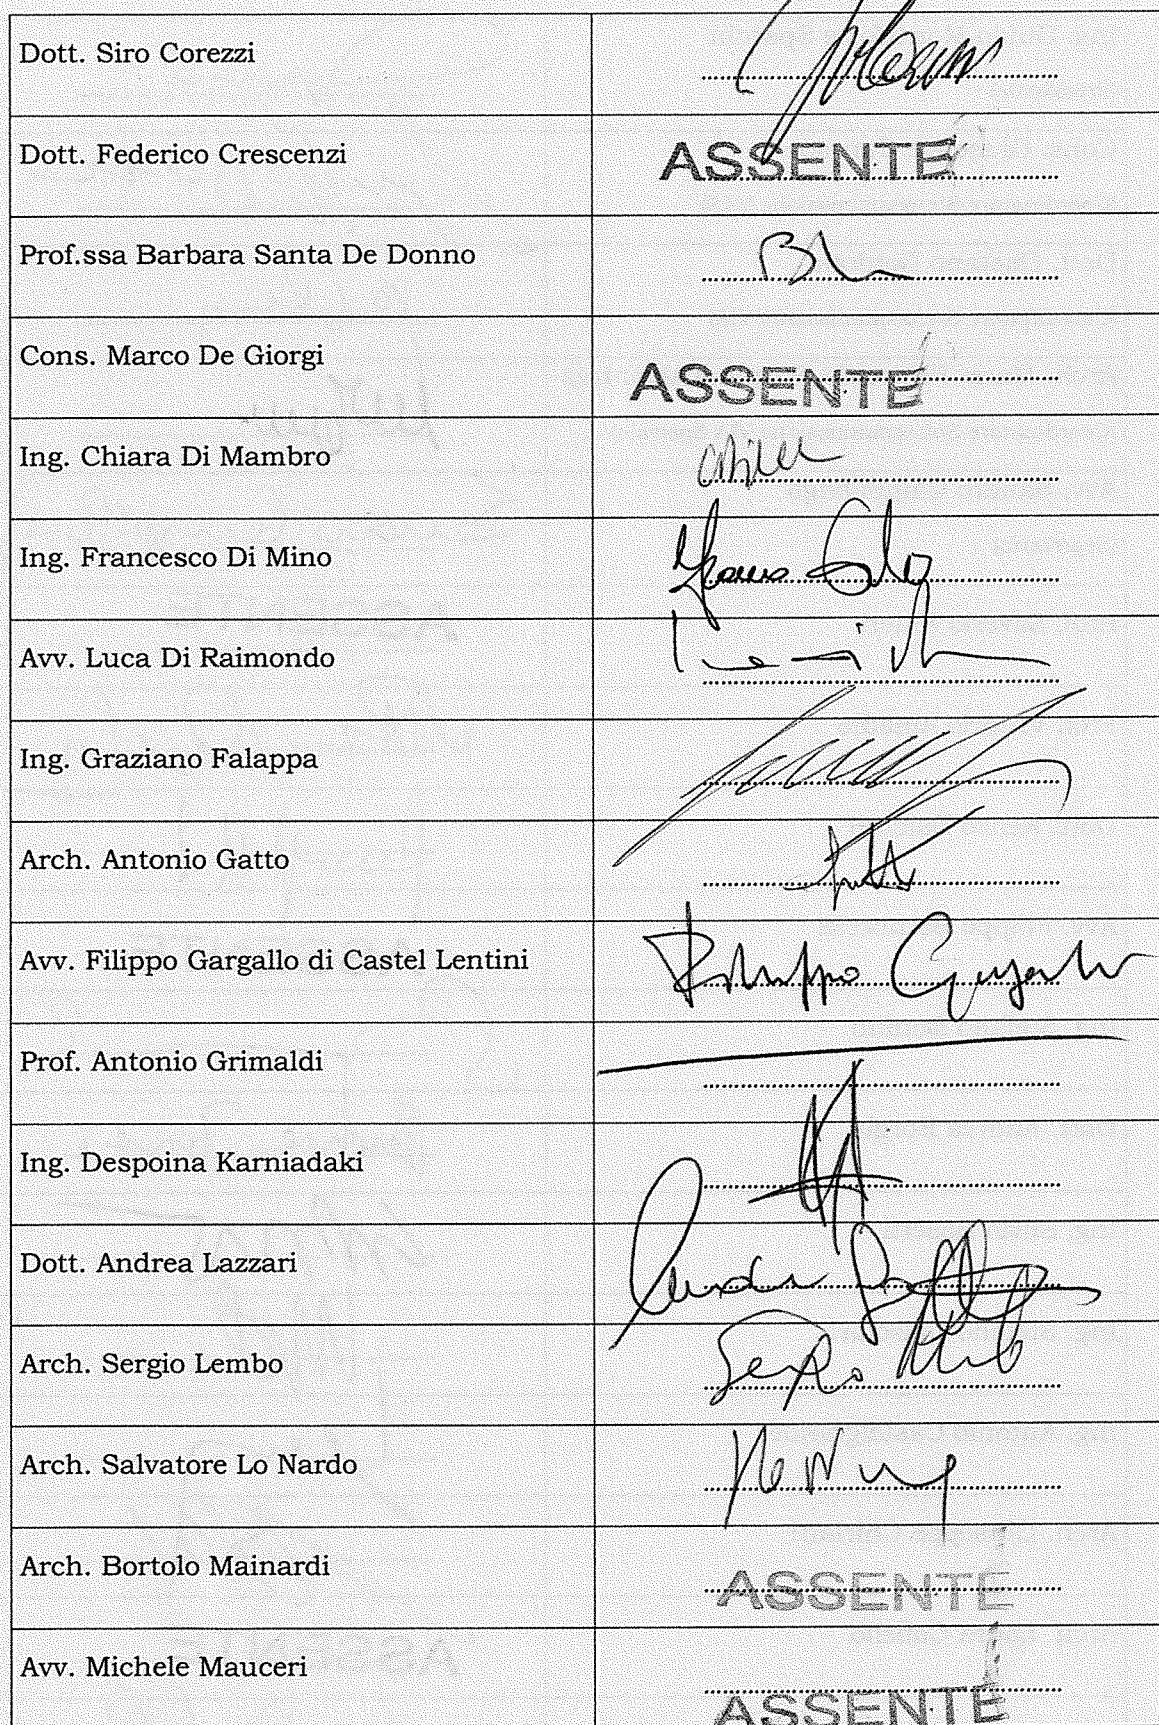 Dott. Siro Corezzi
Dott. Federico Crescenzi ASSENTE
Prof.ssa Barbara Santa De Donno
Cons. Marco De Giorgi ASSENTE
Ing. Chiara Di Mambro
Ing. Francesco Di Mino
Avv. Luca Di Raimondo
Ing. Graziano Falappa
Arch. Antonio Gatto
Avv. Filippo Gargallo di Castel Lentini Filippo Gargallo
Prof. Antonio Grimaldi
Ing. Despoina Karniadaki
Dott. Andrea Lazzari
Arch. Sergio Lembo Sergio
Arch. Salvatore Lo Nardo
Arch. Bortolo Mainardi ASSENTE
Avv. Michele Mauceri ASSENTE